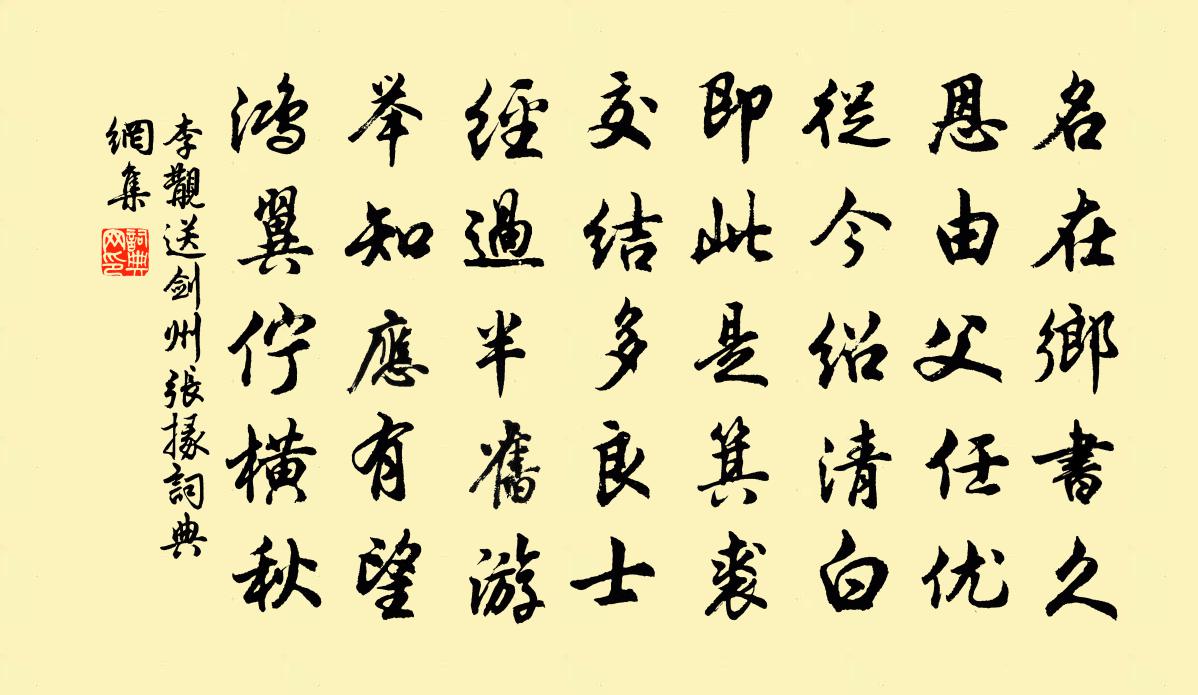 名在鄉書久
恩由父任优
從今紹清白
即此是箕裘
交结多良士
經過半舊游
举知應有望
鸿翼佇横秋
李覯送剑州張掾詞典
網集
詞典
网印